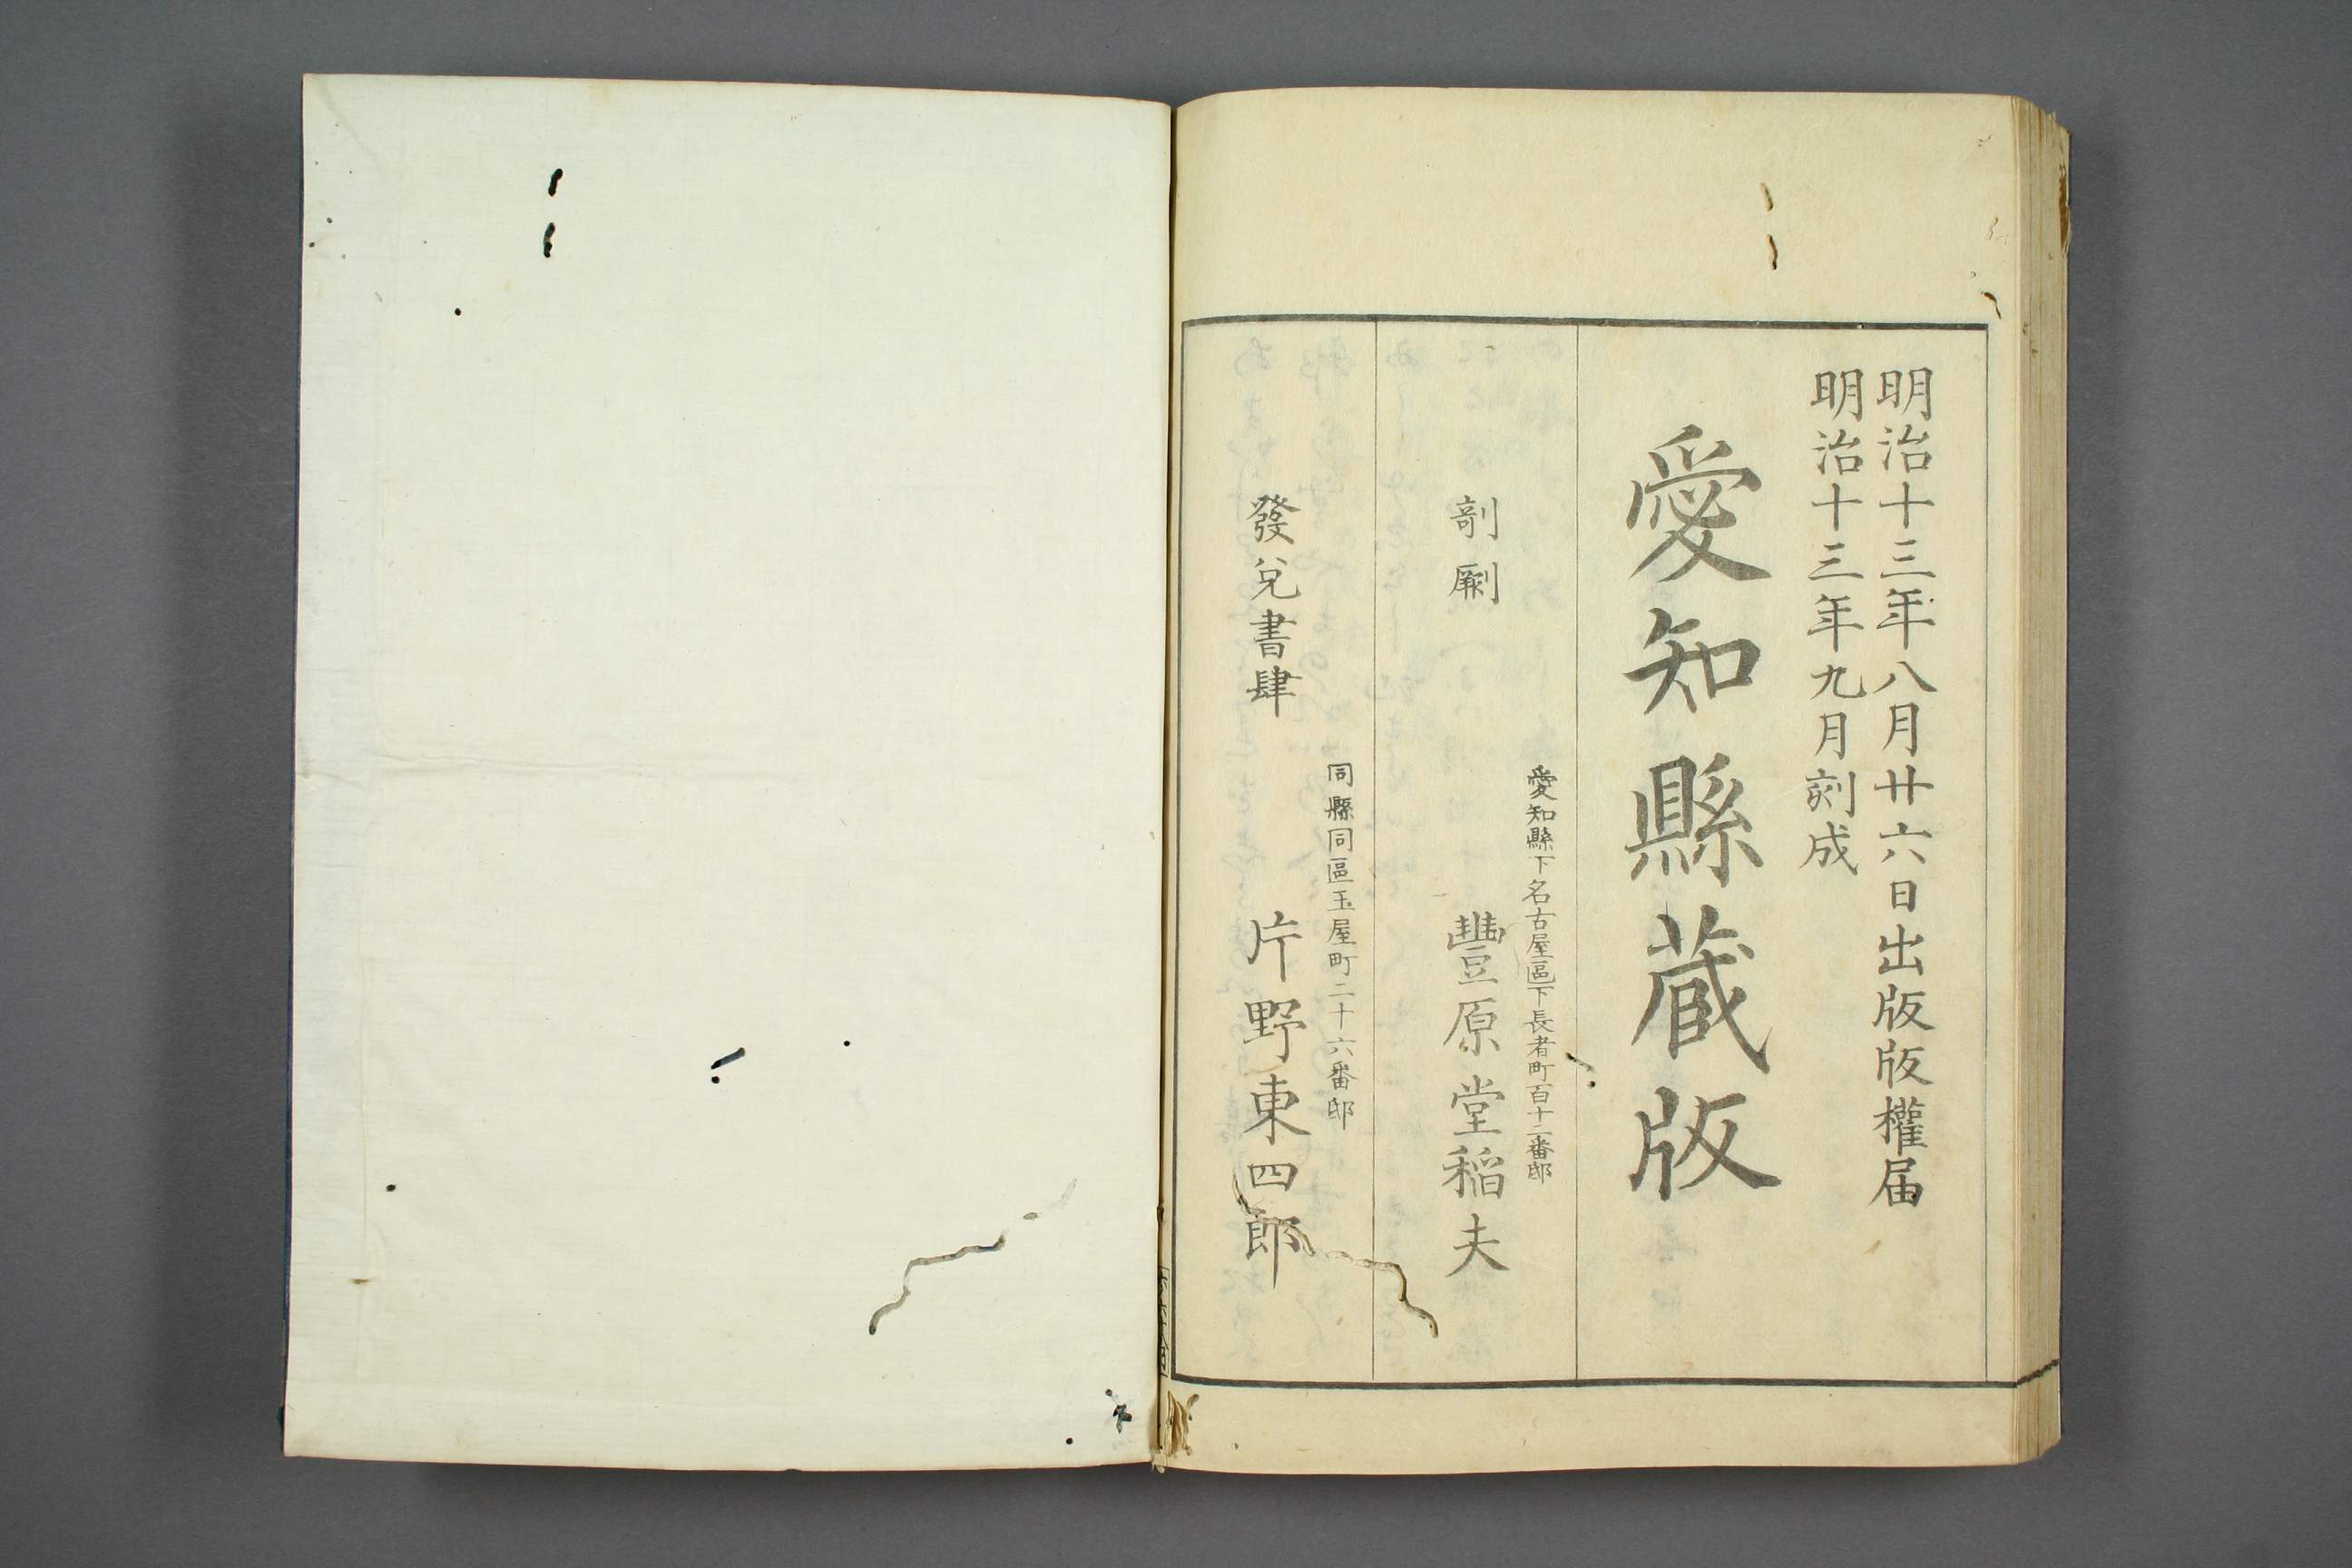 明治十三年八月廿六日出版版權届
明治十三年九月刻成
愛知縣藏版
愛知縣下名古屋區下長者町百十二番邸
剞劂
豐原堂稲夫
同縣同區玉屋町二十六番邸
發兌書肆
片野東四郎